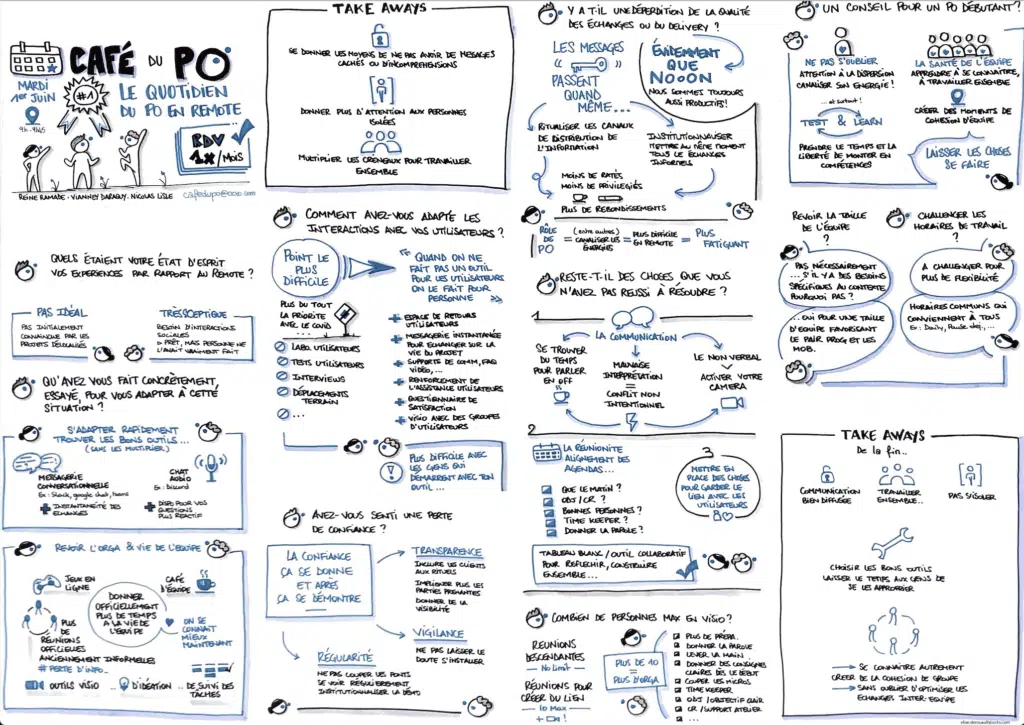 CAFÉ DU PO
MARDI
1ER JUIN
9H - 9H45
#1
LE QUOTIDIEN
DU PO EN REMOTE
RDV
1X/MOIS
REINE RAMADE - VIANNEY DARAGUY - NICOLAS LISLE
QUELS ÉTAIENT VOTRE ÉTAT D'ESPRIT
VOS EXPERIENCES PAR RAPPORT AU REMOTE ?
PAS IDÉAL
PAS INITIALEMENT
CONVAINCUE PAR LES
PROJETS DÉLOCALISÉS
TRÈS SCEPTIQUE
BESOIN D'INTERACTIONS
SOCIALES
PRÊT, MAIS PERSONNE NE
L'AVAIT VRAIMENT FAIT
QU'AVEZ VOUS FAIT CONCRÈTEMENT,
ESSAYÉ, POUR VOUS ADAPTER À CETTE
SITUATION ?
S'ADAPTER RAPIDEMENT
TROUVER LES BONS OUTILS...
(SANS LES MULTIPLIER)
MESSAGERIE
CONVERSATIONNELLE
Ex : Slack, google chat, teams
+ INSTANTANÉITÉ DES
ÉCHANGES
CHAT
AUDIO
Ex : Discord
+ DISPO POUR VOS
QUESTIONS
PLUS RÉACTIF
REVOIR L'ORGA & VIE DE L'ÉQUIPE
JEUX EN
LIGNE
CAFÉ
D'ÉQUIPE
DONNER
OFFICIELLEMENT
PLUS DE TEMPS
A LA VIE DE
L'ÉQUIPE
ON SE
CONNAIT
MIEUX
MAINTENANT
PLUS
DE
RÉUNIONS
OFFICIELLES
ANCIENNEMENT INFORMELLES
# PERTE D'INFO...
OUTILS VISIO ... D'IDÉATION ... DE SUIVI DES
TÂCHES
TAKE AWAYS
SE DONNER LES MOYENS DE NE PAS AVOIR DE MESSAGES
CACHÉS OU D'INCOMPRÉHENSIONS
DONNER PLUS D'ATTENTION AUX PERSONNES
ISOLÉES
MULTIPLIER LES CRÉNEAUX POUR TRAVAILLER
ENSEMBLE
COMMENT AVEZ-VOUS ADAPTÉ LES
INTERACTIONS AVEC VOS UTILISATEURS ?
POINT LE
PLUS
DIFFICILE
QUAND ON NE
FAIT PAS UN OUTIL
POUR LES UTILISATEURS
ON LE FAIT POUR
PERSONNE
PLUS DU TOUT
LA PRIORITÉ
AVEC LE COVID
...
LABO. UTILISATEURS
TESTS UTILISATEURS
INTERVIEWS
DÉPLACEMENTS
TERRAIN
...
+ ESPACE DE RETOURS
UTILISATEURS
+ MESSAGERIE INSTANTANÉE
POUR ECHANGER SUR LA
VIE DU PROJET
+ SUPPORTS DE COMM, FAQ
VIDÉO, ...
+ RENFORCEMENT DE
L'ASSISTANCE UTILISATEURS
+ QUESTIONNAIRE DE
SATISFACTION
+ VISIO AVEC DES GROUPES
D'UTILISATEURS
PLUS DIFFICILE AVEC
LES GENS QUI
DÉMARRENT AVEC TON
OUTIL ...
AVEZ-VOUS SENTI UNE PERTE
DE CONFIANCE ?
LA CONFIANCE
ÇA SE DONNE
ET APRÈS
ÇA SE DÉMONTRE
TRANSPARENCE
INCLURE LES CLIENTS
AUX RITUELS
IMPLIQUER PLUS LES
PARTIES PRENANTES
DONNER DE LA
VISIBILITÉ
VIGILANCE
NE PAS LAISSER LE
DOUTE S'INSTALLER
RÉGULARITÉ
NE PAS COUPER LES PONTS
SE VOIR RÉGULIÈREMENT
INSTITUTIONNALISER LA DÉMO
Y A T-IL UNE DÉPERDITION DE LA QUALITÉ
DES ÉCHANGES OU DU DELIVERY ?
LES MESSAGES
PASSENT
QUAND
MÊME...
ÉVIDEMMENT
QUE
NOOON
NOUS SOMMES TOUJOURS
AUSSI PRODUCTIFS!
RITUALISER LES CANAUX
DE DISTRIBUTION DE
L'INFORMATION
INSTITUTIONNALISER
METTRE AU MÊME MOMENT
TOUS LES ÉCHANGES
INFORMELS
MOINS DE RATÉS
MOINS DE PRIVILÉGIÉS
PLUS DE REBONDISSEMENTS
RÔLE
DE
PO
= (entre autres)
CANALISER LES
ENERGIES
= PLUS DIFFICILE
EN REMOTE
= PLUS
FATIGUANT
RESTE-T-IL DES CHOSES QUE VOUS
N'AVEZ PAS REUSSI À RÉSOUDRE ?
1
LA COMMUNICATION
SE TROUVER
DU TEMPS
POUR PARLER
EN OFF
MAUVAISE
INTERPRÉTATION
=
CONFLIT NON
INTENTIONNEL
LE NON VERBAL
ACTIVER VOTRE
CAMERA
2
LA RÉUNIONITE
ALIGNEMENT DES
AGENDAS...
QUE LE MATIN ?
OBJ / CR ?
BONNES PERSONNES ?
TIME KEEPER ?
DONNER LA PAROLE ?
3
METTRE EN
PLACE DES CHOSES
POUR GARDER LE
LIEN AVEC LES
UTILISATEURS
TABLEAU BLANC / OUTIL COLLABORATIF
POUR REFLECHIR, CONSTRUIRE
ENSEMBLE...
COMBIEN DE PERSONNES MAX EN VISIO ?
REUNIONS
DESCENDANTES
No Limit
RÉUNIONS POUR
CRÉER DU LIEN
10 Max
PLUS DE 10
PLUS D'ORGA
PLUS DE PRÉPA.
DONNER LA PAROLE
LEVER LA MAIN
DONNER DES CONSIGNES
CLAIRES DÈS LE DÉBUT
COUPER LES MICROS
TIME KEEPER
OBJ / OBJECTIF CLAIR
CR / SUPPORT ATELIER
...
UN CONSEIL POUR UN PO DÉBUTANT ?
NE PAS S'OUBLIER
ATTENTION À LA DISPERSION
CANALISER SON ÉNERGIE !
... et surtout !
TEST & LEARN
PRENDRE LE TEMPS ET LA
LIBERTÉ DE MONTER EN
COMPÉTENCES
LA SANTÉ DE L'ÉQUIPE
APPRENDRE À SE CONNAÎTRE,
À TRAVAILLER ENSEMBLE
CRÉER DES MOMENTS DE
COHÉSION D'ÉQUIPE
LAISSER LES CHOSES
SE FAIRE
REVOIR LA TAILLE
DE L'ÉQUIPE
?
PAS NÉCESSAIREMENT
... S'IL Y A DES BESOINS
SPÉCIFIQUES AU CONTEXTE
POURQUOI PAS ?
... OUI POUR UNE TAILLE
D'ÉQUIPE FAVORISANT
LE PAIR PROG ET LES
MOB.
CHALLENGER LES
HORAIRES DE TRAVAIL
?
A CHALLENGER POUR
PLUS DE FLEXIBILITÉ
HORAIRES COMMUNS QUI
CONVIENNENT À TOUS
Ex : Daily, Pause dej, ...
TAKE AWAYS
De la fin...
COMMUNICATION
BIEN DIFFUSÉE
TRAVAILLER
ENSEMBLE...
PAS S'ISOLER
CHOISIR LES BONS OUTILS
LAISSER LE TEMPS AUX GENS DE
SE LES APPROPRIER
SE CONNAÎTRE AUTREMENT
CRÉER DE LA COHÉSION DE GROUPE
SANS OUBLIER D'OPTIMISER LES
ÉCHANGES INTER-ÉQUIPE